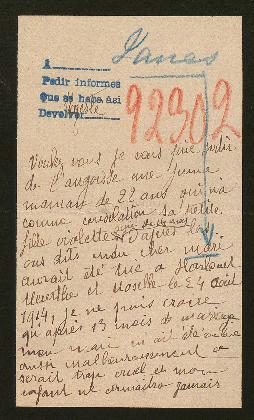 1
Pedir informes
Que se haga así
Devolver
92302
Veuillez vous je vous prie sortir
de l'angoisse une jeune
maman de 22 ans qui n'a
comme consolation sa petite
fille violette D'après les
ons dits mon cher mari
aurait été tué a
Meurthe et Moselle le 24 août
1914, je ne puis croire
qu'après 13 mois de mariage
mon mari m'ait été enlevé
aussi malheureusement ce
serait trop cruel et mon
enfant ne connaitra jamais